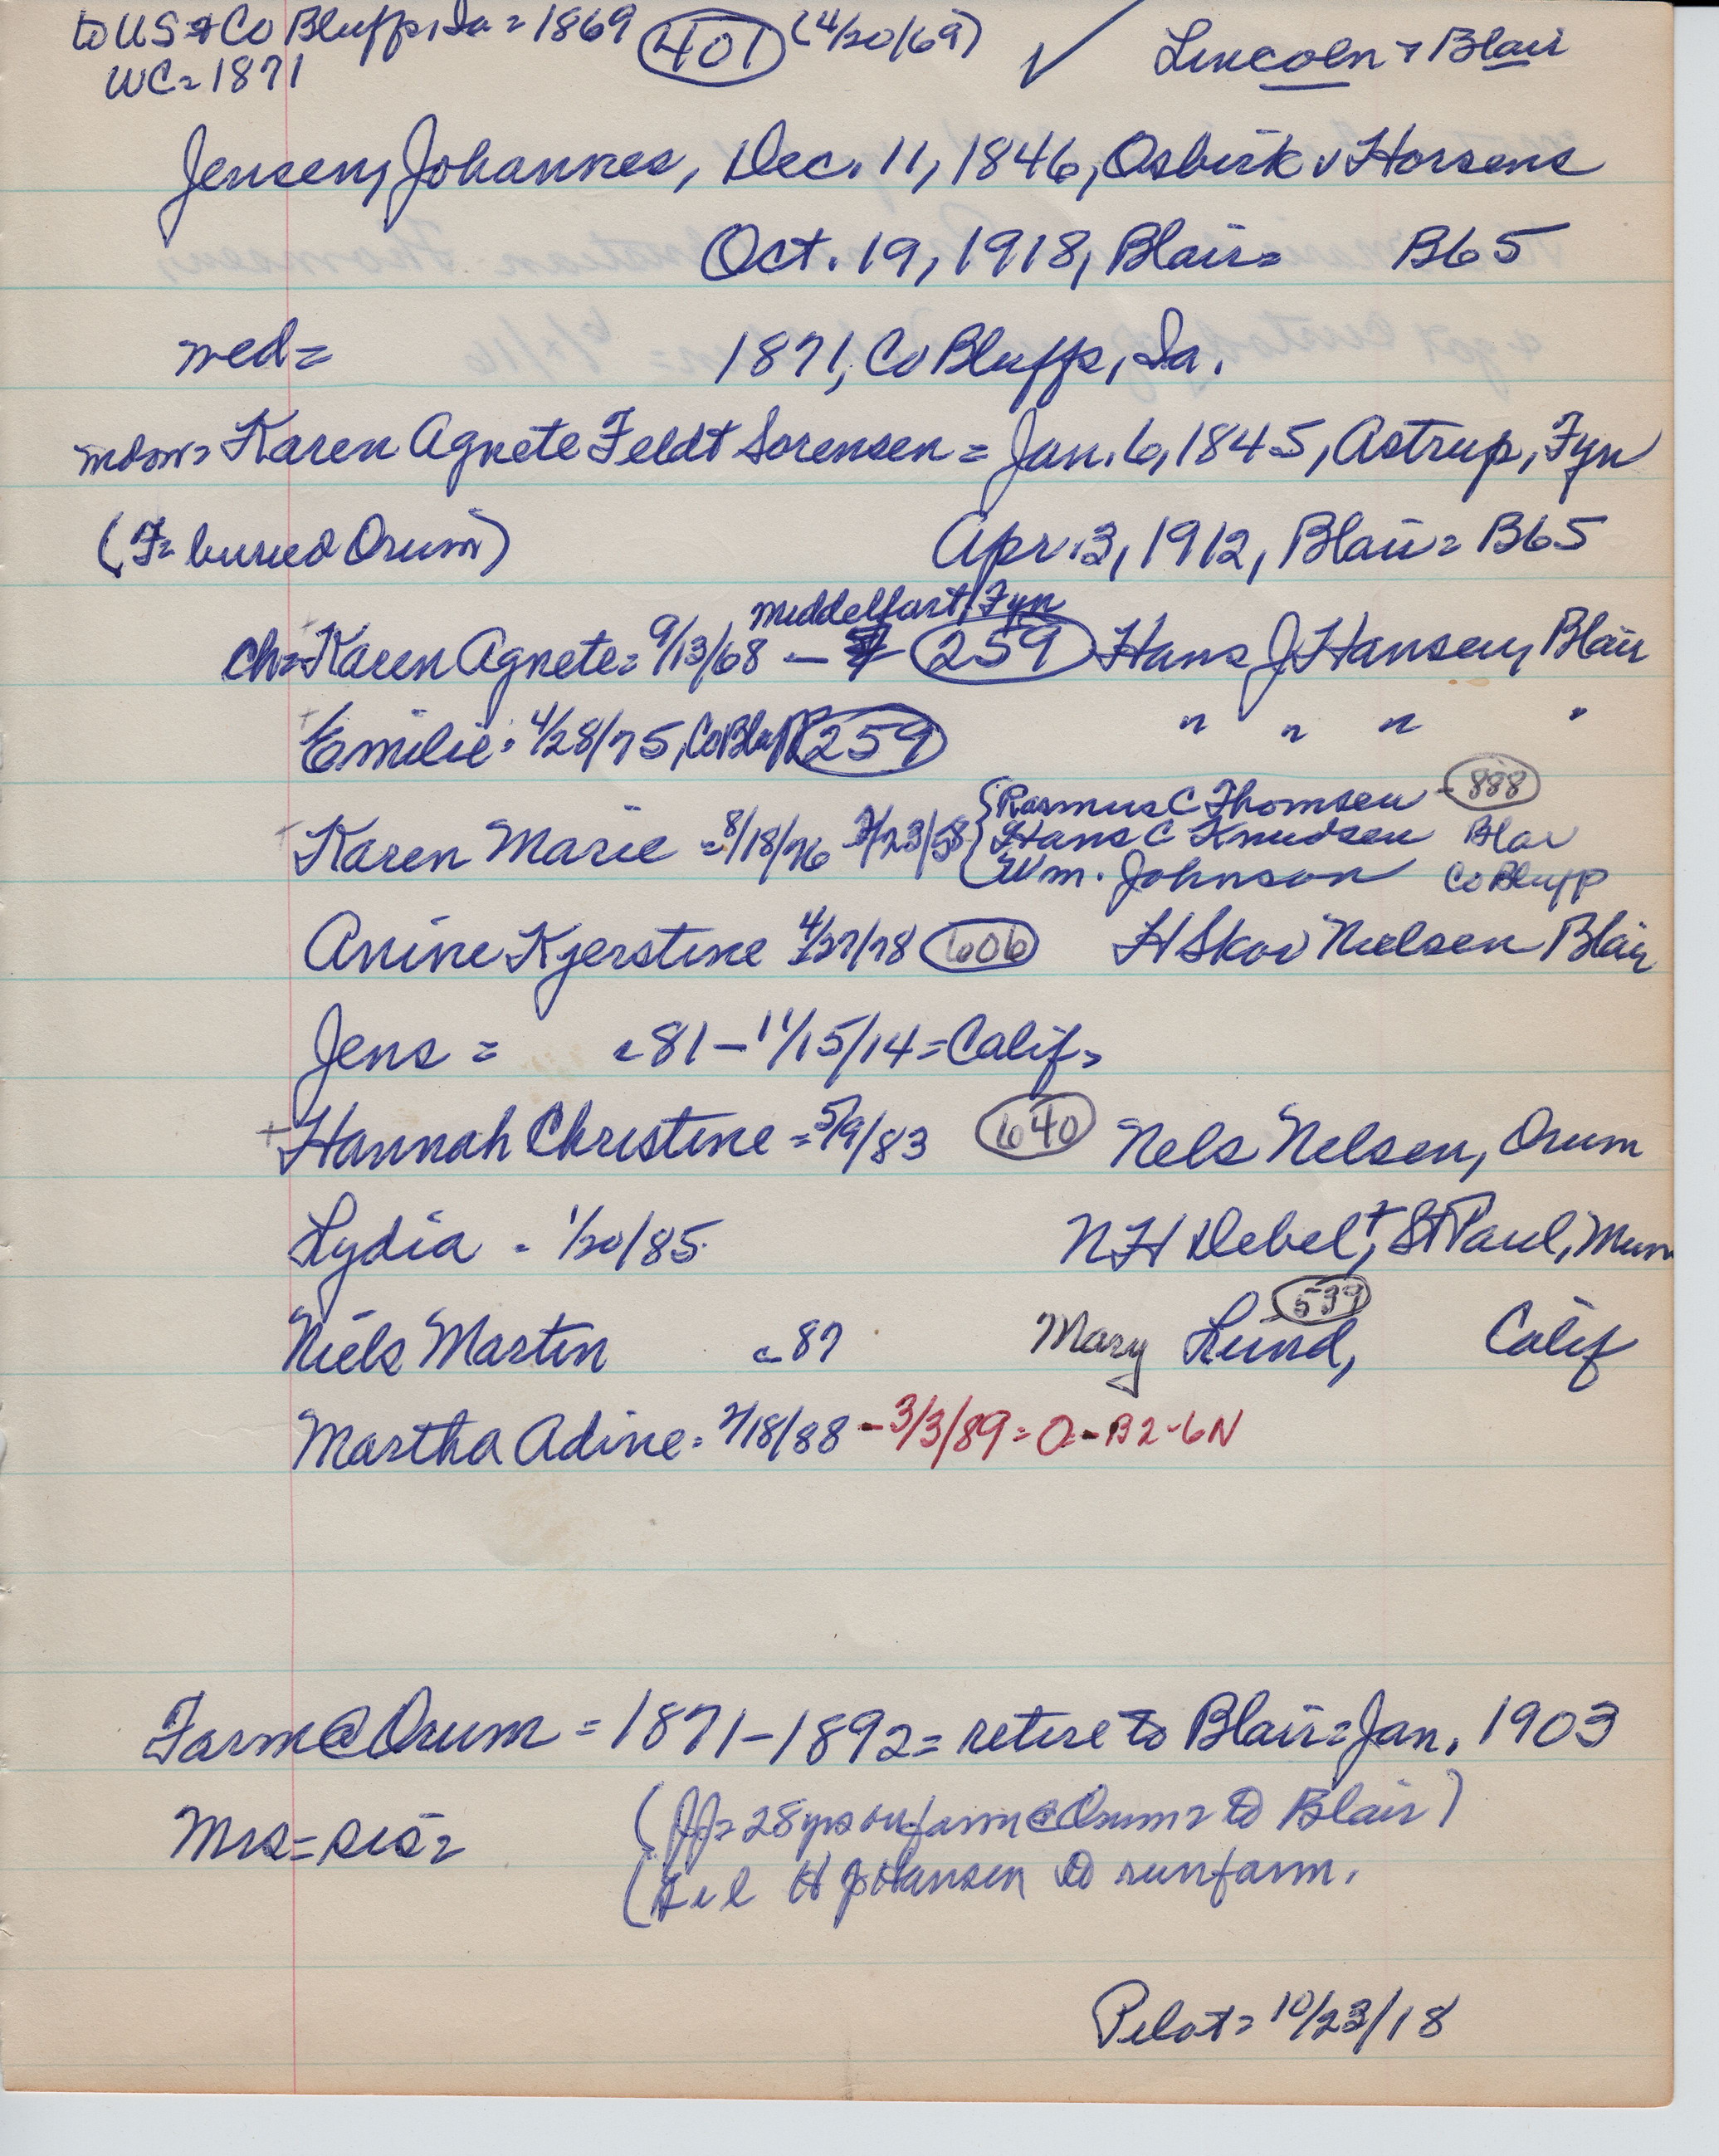 to US + Co Bluffs, Ia = 1869 401 (4/20/69) ✓ Lincoln + Blair
WC = 1871
Jensen, Johannes, Dec. 11, 1846, Osbirk v Horsens
Oct. 19, 1918, Blair = B65
wed = 1871, Co Bluffs, Ia.
Karen Agnete Feldt Sorensen = Jan. 6, 1845, Astrup, Fyn
(F = buried Orum) Apr. 3, 1912, Blair = B65
Middelfart, Fyn
ch = Karen Agnete = 9/13/68 — 259 Hans J Hansen, Blair
Emilie = 4/28/75, Co Bluffs 259 " " " "
Rasmus C Thomsen - 888
Karen Marie = 8/18/76 2/23/58 { Hans C Knudsen Blair
Wm. Johnson Co Bluffs
Anine Kjerstine 4/27/78 606 H Skov Nielsen Blair
Jens = c 81 – 11/15/14 = Calif =
+ Hannah Christine = 5/9/83 640 Nels Nelsen, Orum
Lydia = 1/20/85 N H Debelt, St Paul, Minn
539
Niels Martin c 87 Mary Lund, Calif
Martha Adine = 2/18/88 - 3/3/89 = O - B2-6N
Farm @ Orum = 1871 – 1892 = retire to Blair = Jan. 1903
Mrs = sis = (JJ = 28 yrs on farm @ Orum = to Blair)
(S i l H J Hansen to run farm.
Pilot = 10/23/18